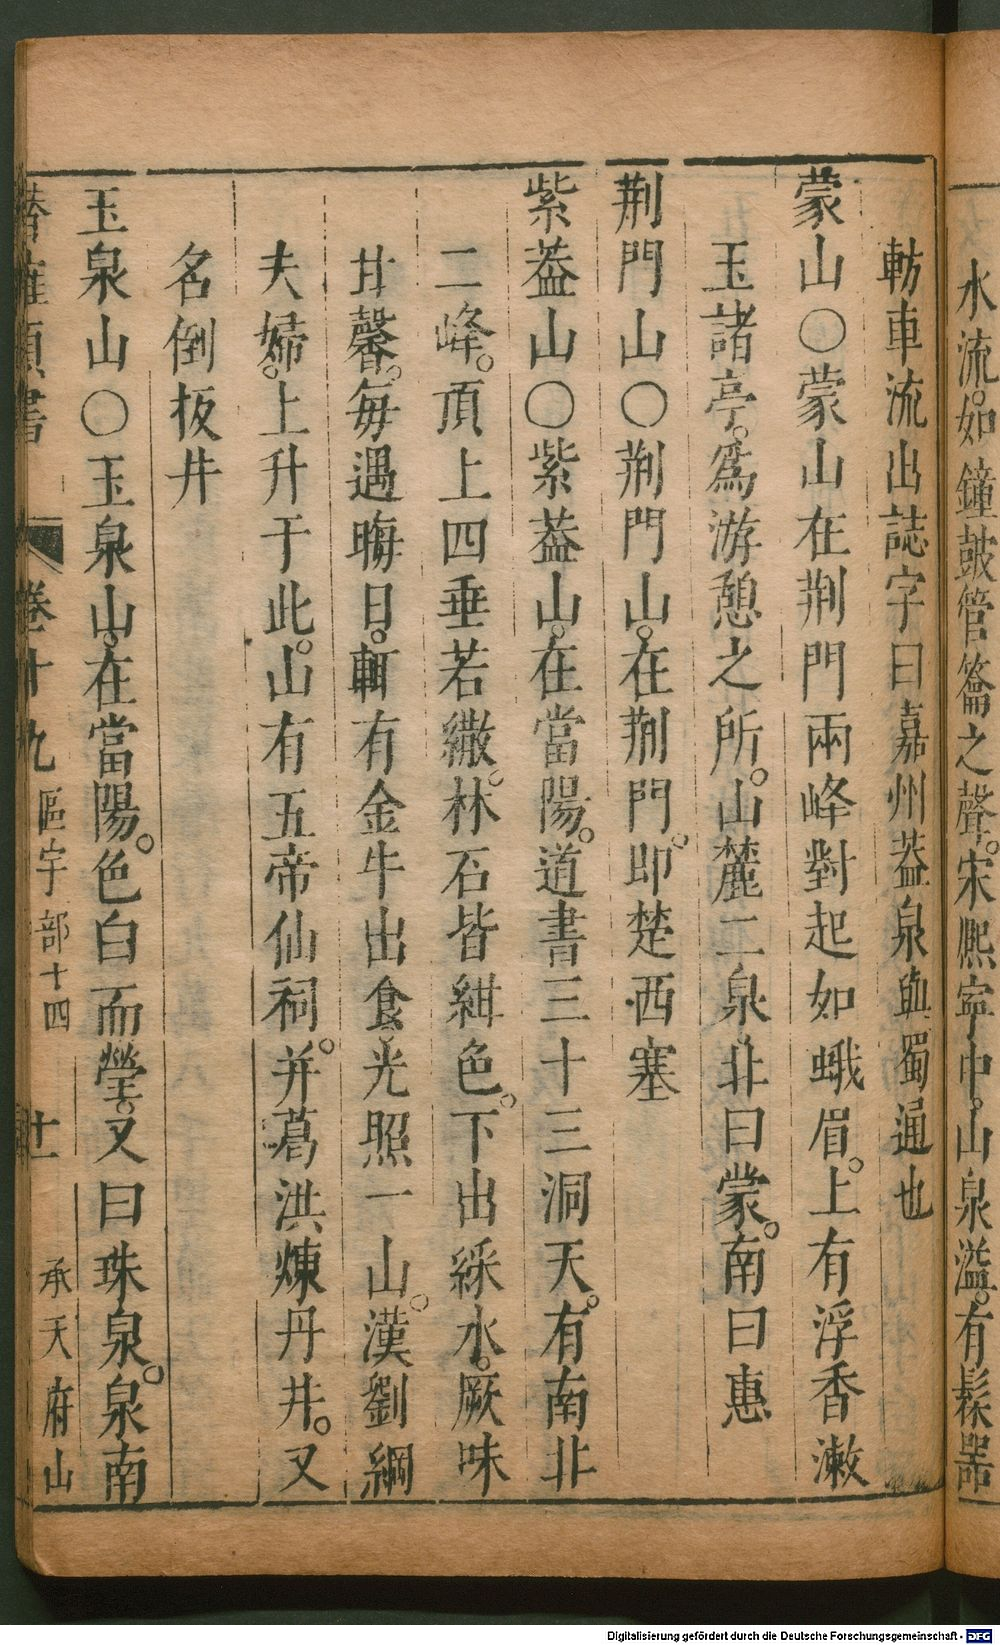 水流。如鐘鼓管籥之聲。宋熈寧中。山泉溢。有髹器
軿車流出誌字曰嘉州葢泉與蜀通也
蒙山○蒙山在荆門兩峰對起如蛾眉。上有浮香漱
玉諸亭。爲游憩之所。山麓二泉。北曰蒙。南曰惠
荆門山○荆門山。在荆門。即楚西塞
紫葢山○紫葢山。在當陽。道書三十三洞天。有南北
二峰。頂上四垂若繖。林石皆紺色。下出綵水。厥味
甘馨。每遇晦日。輒有金牛出食。光照一山。漢劉綱
夫婦。上升于此。山有五帝仙祠。并葛洪煉丹井。又
名倒扳井
玉泉山○玉泉山。在當陽。色白而瑩。又曰珠泉。泉南
類書 卷十九 區宇部十四 十一 承天府山
Digitalisierung gefördert durch die Deutsche Forschungsgemeinschaft - DFG